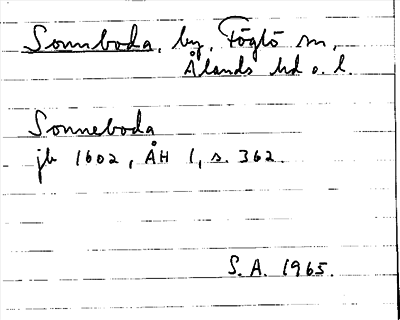 Sonnboda, by, Föglö sn,
Ålands hd o. l.
Sonneboda
jb 1602, ÅH 1, s. 362.
S.A. 1965.